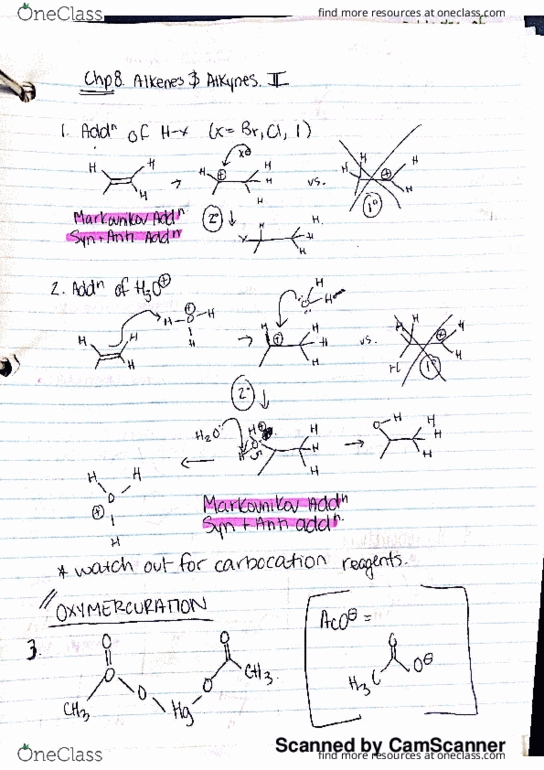 OneClass
find more resources at oneclass.com
Chp 8. Alkenes & Alkynes. II
1. Addⁿ of H-x (x= Br, Cl, I)
H H H x⊖ H H H
⊕ H vs. ⊕
H H 1°
Markovnikov Addⁿ 2° ↓ H H
Syn + Anti Addⁿ X H
H
2. Addⁿ of H₃O⊕
H ⊕ H H H
H-O-H O H
H H → ⊕ H vs. ⊕ H
H H H H 1°
2° ↓
H₂O H⊕ H O-H H
H → H
H H H H
O
⊕
H
Markovnikov Addⁿ
Syn + Anti addⁿ.
* watch out for carbocation reagents.
OXYMERCURATION
3.
O O
O CH₃.
CH₃ O Hg
AcO⊖ =
O
H₃C O⊖
Scanned by CamScanner
OneClass
find more resources at oneclass.com